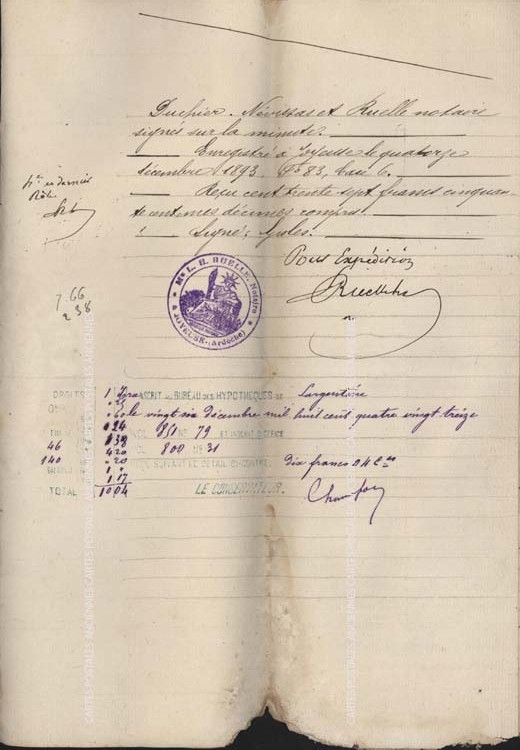 Duchier. Névissas et Ruelle notaire
signés sur la minute.
Enregistré à Joyeuse le quatorze
décembre 1893, Fo 83, Case 6.
Reçu cent trente sept francs cinquan-
te centimes décimes compris.
Signé: Gules.
Pour Expédition
Ruelle
4e et dernier
Rôle
Me L. H. RUELLE, Notaire
à JOYEUSE (Ardèche)
7 66
2 38
DROITS 1 TRANSCRIT AU BUREAU DES HYPOTHÈQUES DE Largentière
le vingt six décembre mil huit cent quatre vingt treize
24 VOL 851 No 79 ET INSCRIT D'OFFICE
46 38 VOL 800 No 31
940 420 20 SUIVANT LE DÉTAIL CI-CONTRE. Dix francs 04 ces
1 17
TOTAL 10 04 LE CONSERVATEUR.
CARTES POSTALES ANCIENNES CARTES POSTALES ANCIENNES